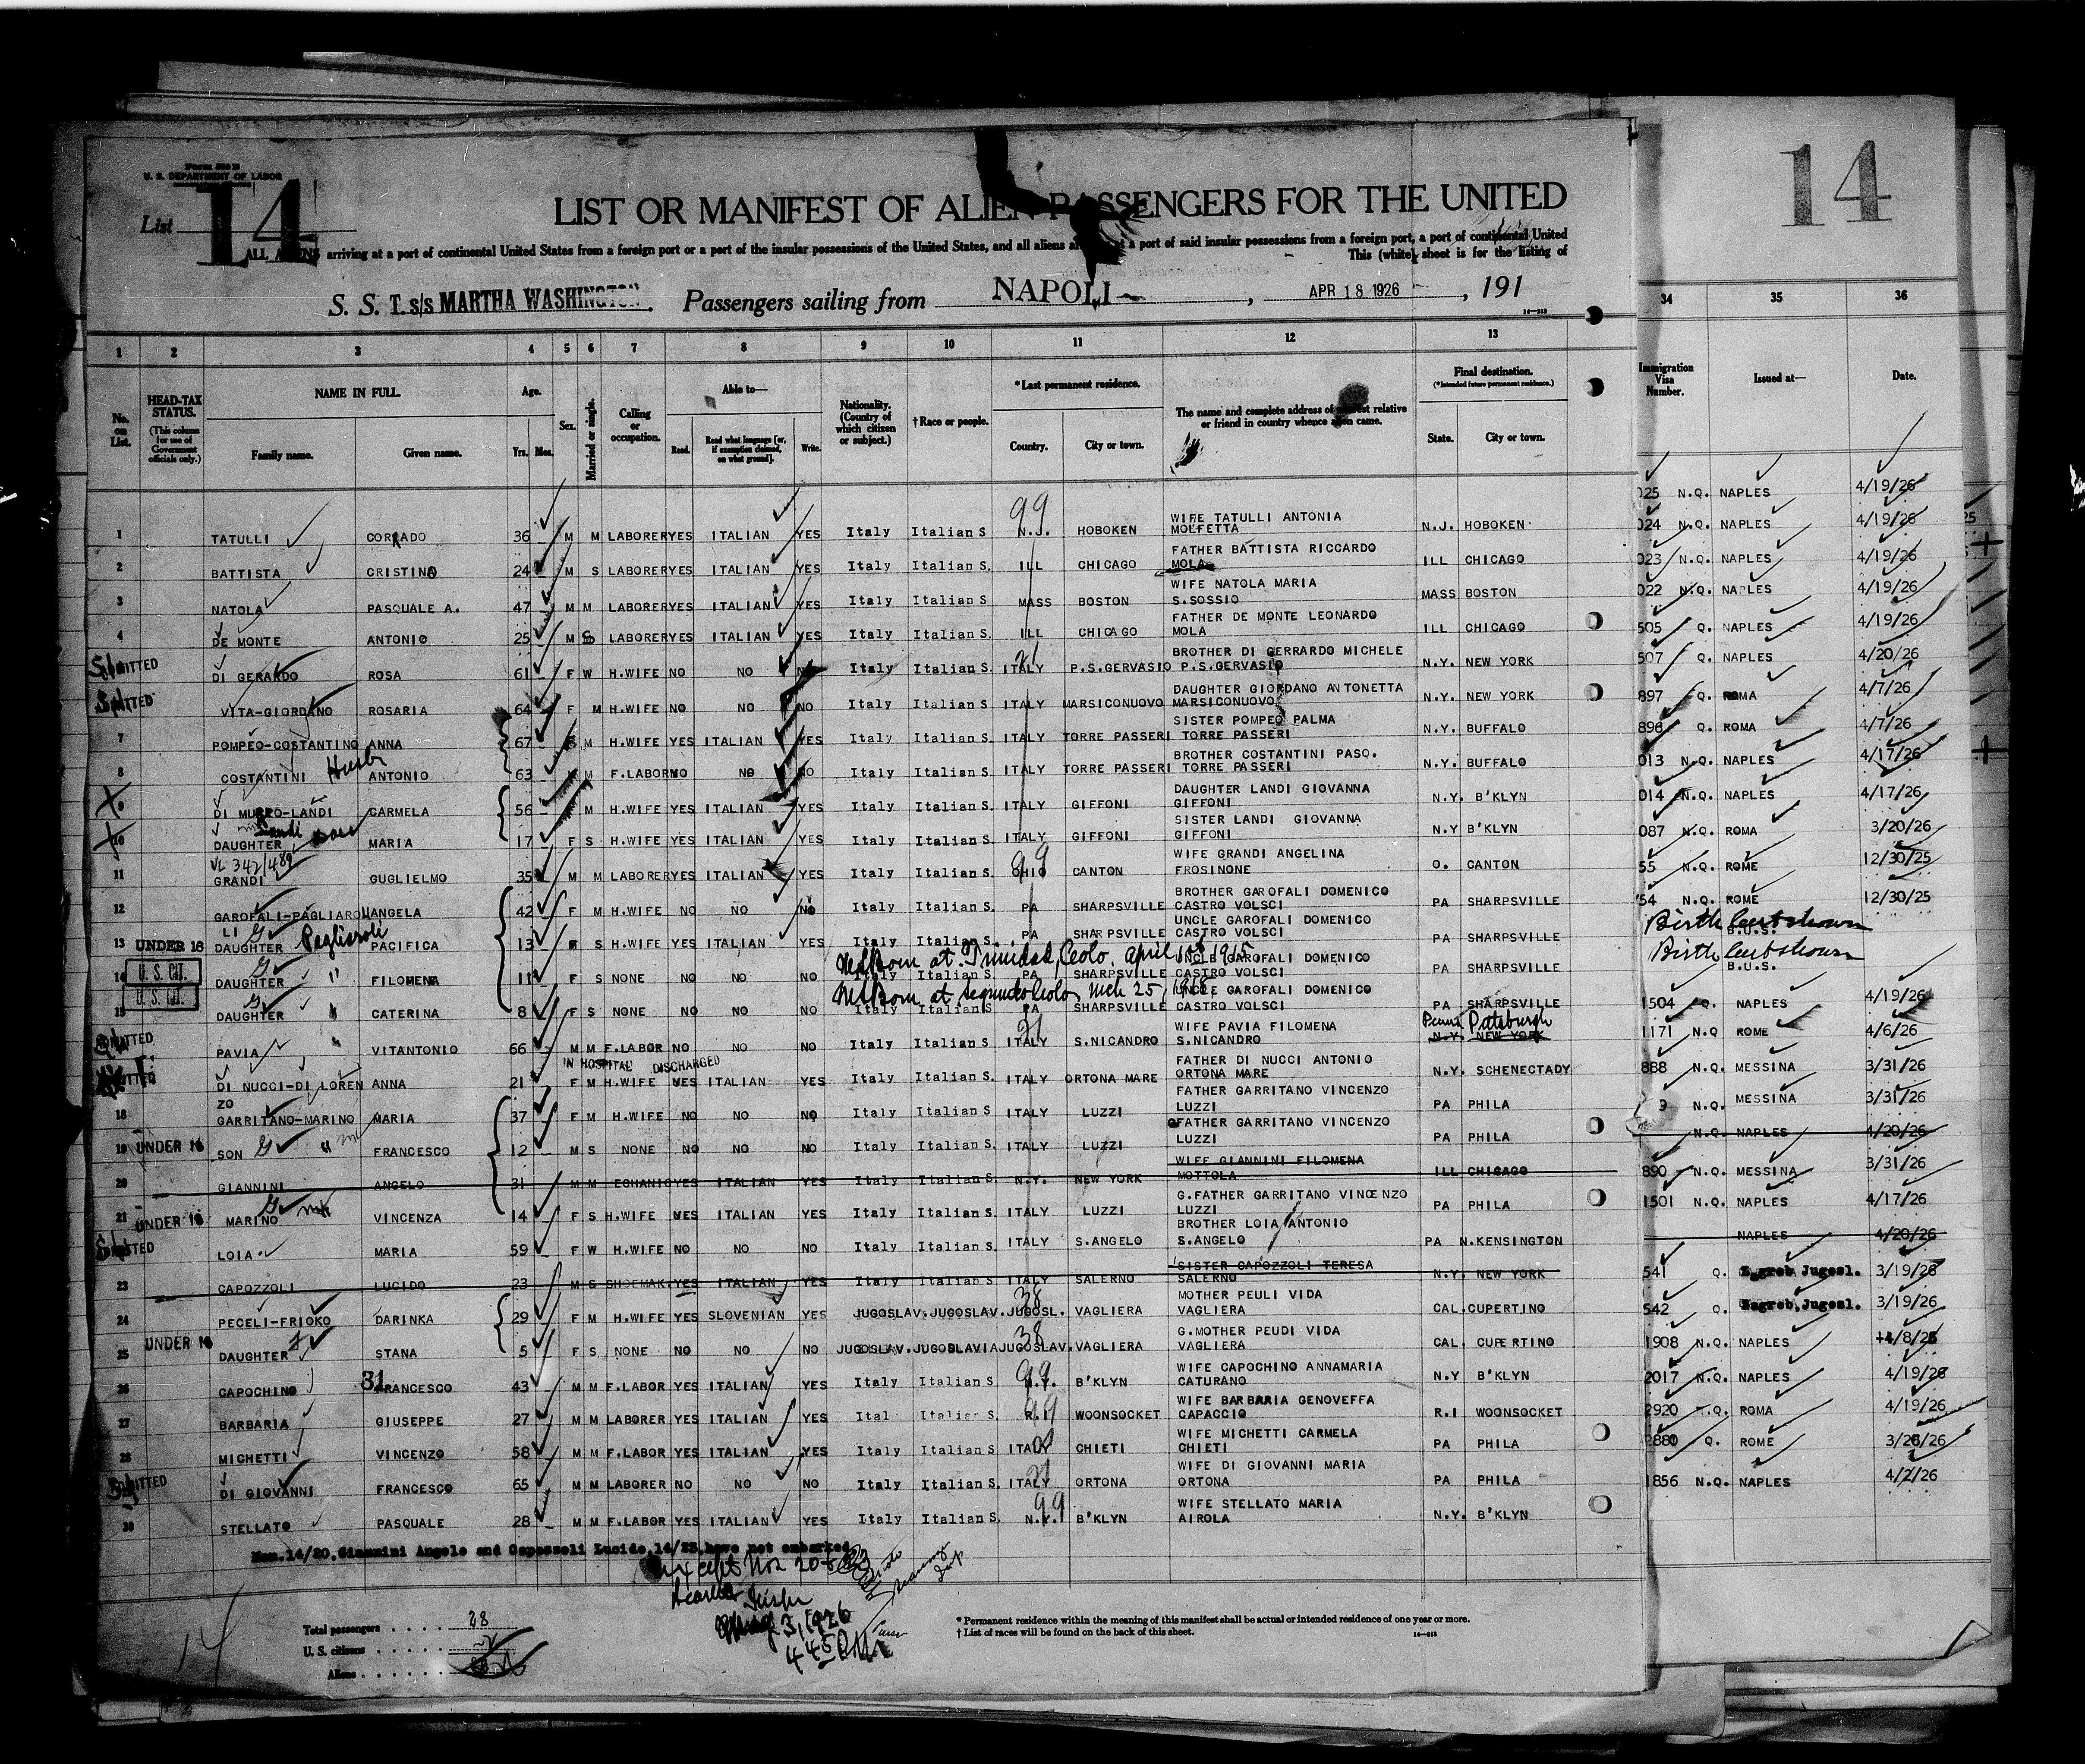 Form 500 B
U. S. DEPARTMENT OF LABOR
List 14
14
LIST OR MANIFEST OF ALIEN PASSENGERS FOR THE UNITED
ALL ALIENS arriving at a port of continental United States from a foreign port or a port of the insular possessions of the United States, and all aliens at a port of said insular possessions from a foreign port, a port of continental United
This (white) sheet is for the listing of
S. S. T. s/s MARTHA WASHINGTON. Passengers sailing from NAPOLI, APR 18 1926, 191
1 2 3 4 5 6 7 8 9 10 11 12 13 34 35 36
No. on List. HEAD-TAX STATUS. (This column for use of Government officials only.) NAME IN FULL. Family name. Given name. Age. Yrs. Mos. Sex. Married or single. Calling or occupation. Able to— Read. Read what language [or, if exemption claimed, on what ground]. Write. Nationality. (Country of which citizen or subject.) † Race or people. * Last permanent residence. Country. City or town. The name and complete address of nearest relative or friend in country whence alien came. Final destination. (* Intended future permanent residence.) State. City or town. Immigration Visa Number. Issued at— Date.
025 N.Q. NAPLES 4/19/26
99
1 TATULLI CORRADO 36 M M LABORER YES ITALIAN YES Italy Italian S N.J. HOBOKEN WIFE TATULLI ANTONIA MOLFETTA N.J. HOBOKEN 024 N.Q. NAPLES 4/19/26
2 BATTISTA CRISTINO 24 M S LABORER YES ITALIAN YES Italy Italian S. ILL CHICAGO FATHER BATTISTA RICCARDO MOLA ILL CHICAGO 023 N.Q. NAPLES 4/19/26
3 NATOLA PASQUALE A. 47 M M LABORER YES ITALIAN YES Italy Italian S MASS BOSTON WIFE NATOLA MARIA S.SOSSIO MASS BOSTON 022 N.Q. NAPLES 4/19/26
4 DE MONTE ANTONIO 25 M S LABORER YES ITALIAN YES Italy Italian S. ILL CHICAGO FATHER DE MONTE LEONARDO MOLA ILL CHICAGO 505 Q. NAPLES 4/19/26
ADMITTED DI GERARDO ROSA 61 F W H.WIFE NO NO NO Italy Italian S. ITALY P.S.GERVASIO BROTHER DI GERRARDO MICHELE P.S.GERVASIO N.Y. NEW YORK 507 Q. NAPLES 4/20/26
VITA-GIORDANO ROSARIA 64 F M H.WIFE NO NO NO Italy Italian S. ITALY MARSICONUOVO DAUGHTER GIORDANO ANTONETTA MARSICONUOVO N.Y. NEW YORK 897 Q. ROMA 4/7/26
7 POMPEO-COSTANTINO ANNA 67 M H.WIFE YES ITALIAN YES Italy Italian S. ITALY TORRE PASSERI SISTER POMPEO PALMA TORRE PASSERI N.Y. BUFFALO 896 Q. ROMA 4/7/26
8 COSTANTINI Husb ANTONIO 63 M F.LABOR NO NO NO Italy Italian S. ITALY TORRE PASSERI BROTHER COSTANTINI PASQ. TORRE PASSERI N.Y. BUFFALO 013 N.Q. NAPLES 4/17/26
9 DI MURRO-LANDI CARMELA 56 M H.WIFE YES ITALIAN YES Italy Italian S. ITALY GIFFONI DAUGHTER LANDI GIOVANNA GIFFONI N.Y. B'KLYN 014 N.Q. NAPLES 4/17/26
10 DAUGHTER Landi MARIA 17 F S H.WIFE YES ITALIAN YES Italy Italian S. ITALY GIFFONI SISTER LANDI GIOVANNA GIFFONI N.Y B'KLYN 087 N.Q. ROMA 3/20/26
VL 342/489
11 GRANDI GUGLIELMO 35 M M LABORER YES ITALIAN YES Italy Italian S. OHIO CANTON WIFE GRANDI ANGELINA FROSINONE O. CANTON 55 N.Q. ROME 12/30/25
12 GAROFALI-PAGLIAROLI ANGELA 42 F M H.WIFE NO NO NO Italy Italian S. PA SHARPSVILLE BROTHER GAROFALI DOMENICO CASTRO VOLSCI PA SHARPSVILLE 54 N.Q. ROME 12/30/25
13 UNDER 16 DAUGHTER Pagliaroli PACIFICA 13 S H.WIFE YES ITALIAN YES Italy Italian S. PA SHARPSVILLE UNCLE GAROFALI DOMENICO CASTRO VOLSCI PA SHARPSVILLE Birth Cert shown B.U.S.
Born at Trinidad, Colo. April 1915
14 U. S. CIT. DAUGHTER " FILOMENA 11 F S NONE NO NO NO Italy Italian S. PA SHARPSVILLE UNCLE GAROFALI DOMENICO CASTRO VOLSCI PA SHARPSVILLE Birth Cert shown B.U.S.
Born at Segundo Colo, Mch 25, 1918
15 U. S. CIT. DAUGHTER " CATERINA 8 F S NONE NO NO NO Italy Italian S PA SHARPSVILLE UNCLE GAROFALI DOMENICO CASTRO VOLSCI PA SHARPSVILLE 1504 Q. NAPLES 4/19/26
ADMITTED PAVIA VITANTONIO 66 M M F.LABOR NO NO NO Italy Italian S. ITALY S.NICANDRO WIFE PAVIA FILOMENA S.NICANDRO Penna Pittsburgh N.Y. NEW YORK 1171 N.Q ROME 4/6/26
IN HOSPITAL DISCHARGED
DI NUCCI-DI LORENZO ANNA 21 F M H.WIFE YES ITALIAN YES Italy Italian S. ITALY ORTONA MARE FATHER DI NUCCI ANTONIO ORTONA MARE N.Y. SCHENECTADY 888 N.Q. MESSINA 3/31/26
18 GARRITANO-MARINO MARIA 37 F M H.WIFE NO NO NO Italy Italian S ITALY LUZZI FATHER GARRITANO VINCENZO LUZZI PA PHILA 9 N.Q. MESSINA 3/31/26
19 UNDER 16 SON " FRANCESCO 12 M S NONE NO NO NO Italy Italian S. ITALY LUZZI FATHER GARRITANO VINCENZO LUZZI PA PHILA N.Q. NAPLES 4/20/26
20 GIANNINI ANGELO 31 M M ECHANIC YES ITALIAN YES Italy Italian S. N.Y. NEW YORK WIFE GIANNINI FILOMENA MOTTOLA ILL CHICAGO 890 N.Q. MESSINA 3/31/26
21 UNDER 16 MARINO VINCENZA 14 F S H.WIFE YES ITALIAN YES Italy Italian S. ITALY LUZZI G.FATHER GARRITANO VINCENZO LUZZI PA PHILA 1501 N.Q. NAPLES 4/17/26
ADMITTED LOIA MARIA 59 F W H.WIFE NO NO NO Italy Italian S. ITALY S.ANGELO BROTHER LOIA ANTONIO S.ANGELO PA N.KENSINGTON NAPLES 4/20/26
23 CAPOZZOLI LUCIDO 23 M S SHOEMAK. YES ITALIAN YES Italy Italian S. ITALY SALERNO SISTER CAPOZZOLI TERESA SALERNO N.Y. NEW YORK 541 Q. Zagreb Jugosl. 3/19/26
38
24 PECELI-FRIOKO DARINKA 29 F M H.WIFE YES SLOVENIAN YES JUGOSLAV. JUGOSLAV. JUGOSL. VAGLIERA MOTHER PEULI VIDA VAGLIERA CAL. CUPERTINO 542 Q. Zagreb, Jugosl. 3/19/26
38
25 UNDER 16 DAUGHTER STANA 5 F S NONE NO NO NO JUGOSLAV. JUGOSLAVIA JUGOSLAV. VAGLIERA G.MOTHER PEUDI VIDA VAGLIERA CAL. CUPERTINO 1908 N.Q. NAPLES 4/8/26
26 CAPOCHINO 31 FRANCESCO 43 M M F.LABOR YES ITALIAN YES Italy Italian S N.Y. B'KLYN WIFE CAPOCHINO ANNAMARIA CATURANO N.Y B'KLYN 2017 N.Q. NAPLES 4/19/26
27 BARBARIA GIUSEPPE 27 M M LABORER YES ITALIAN YES Ital Italian S. R.I WOONSOCKET WIFE BARBARIA GENOVEFFA CAPACCIO R.I WOONSOCKET 2920 N.Q. ROMA 4/19/26
28 MICHETTI VINCENZO 58 M M F.LABOR YES ITALIAN YES Italy Italian S ITALY CHIETI WIFE MICHETTI CARMELA CHIETI PA PHILA 2880 Q. ROME 3/26/26
ADMITTED DI GIOVANNI FRANCESCO 65 M M LABORER NO NO NO Italy Italian S. ITALY ORTONA WIFE DI GIOVANNI MARIA ORTONA PA PHILA 1856 N.Q. NAPLES 4/2/26
99
30 STELLATO PASQUALE 28 M M F.LABOR YES ITALIAN YES Italy Italian S. N.Y. B'KLYN WIFE STELLATO MARIA AIROLA N.Y. B'KLYN
Mem. 14/20, Giannini Angelo and Capozzoli Lucido, 14/23, have not embarked
Except Nos 20 & 23
May 3, 1926
4 45 PM
14
Total passengers . . . . 28
U. S. citizens . . . . .
Aliens . . . . . .
* Permanent residence within the meaning of this manifest shall be actual or intended residence of one year or more.
† List of races will be found on the back of this sheet.